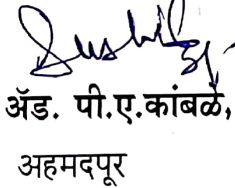 ॲड. पी.ए.कांबळे,
अहमदपूर